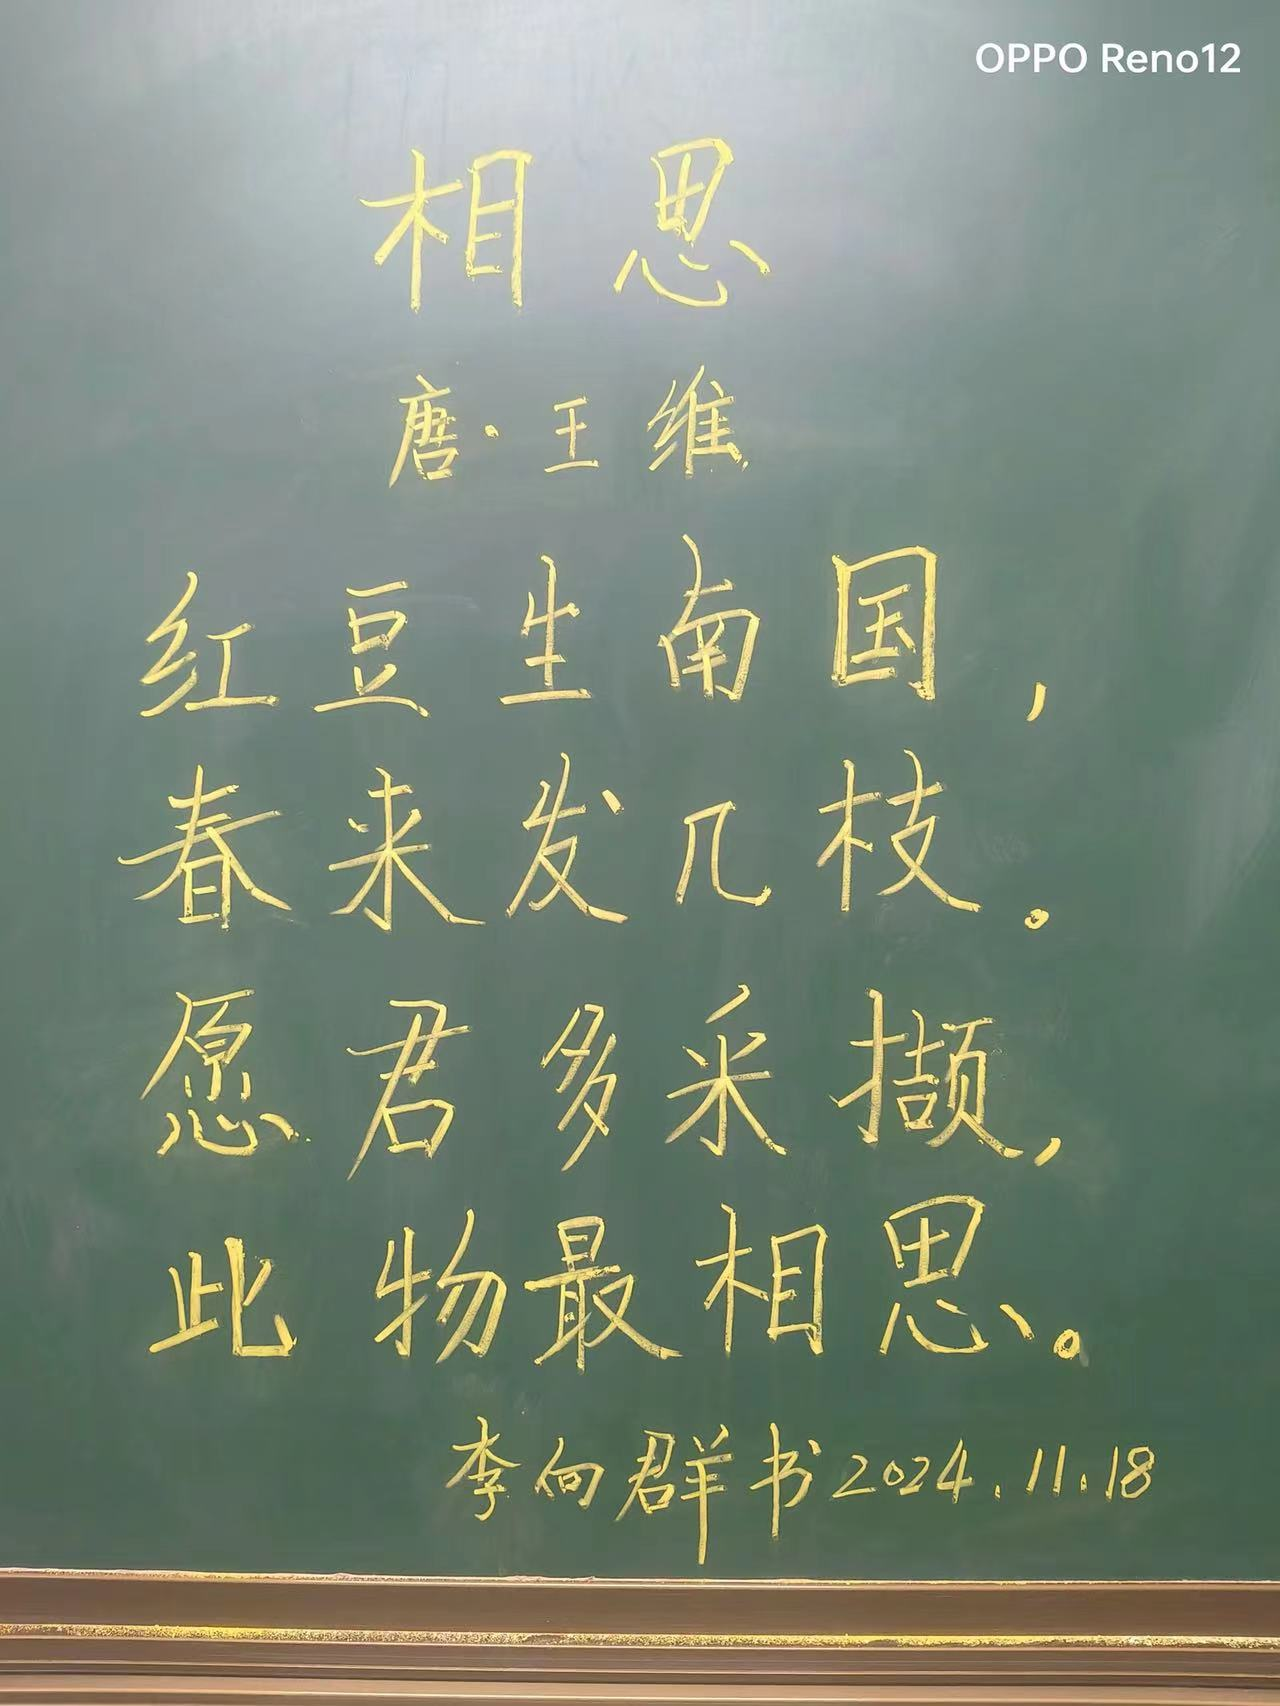 OPPO Reno12
相思
唐·王维
红豆生南国，
春来发几枝。
愿君多采撷，
此物最相思。
李向群书2024.11.18